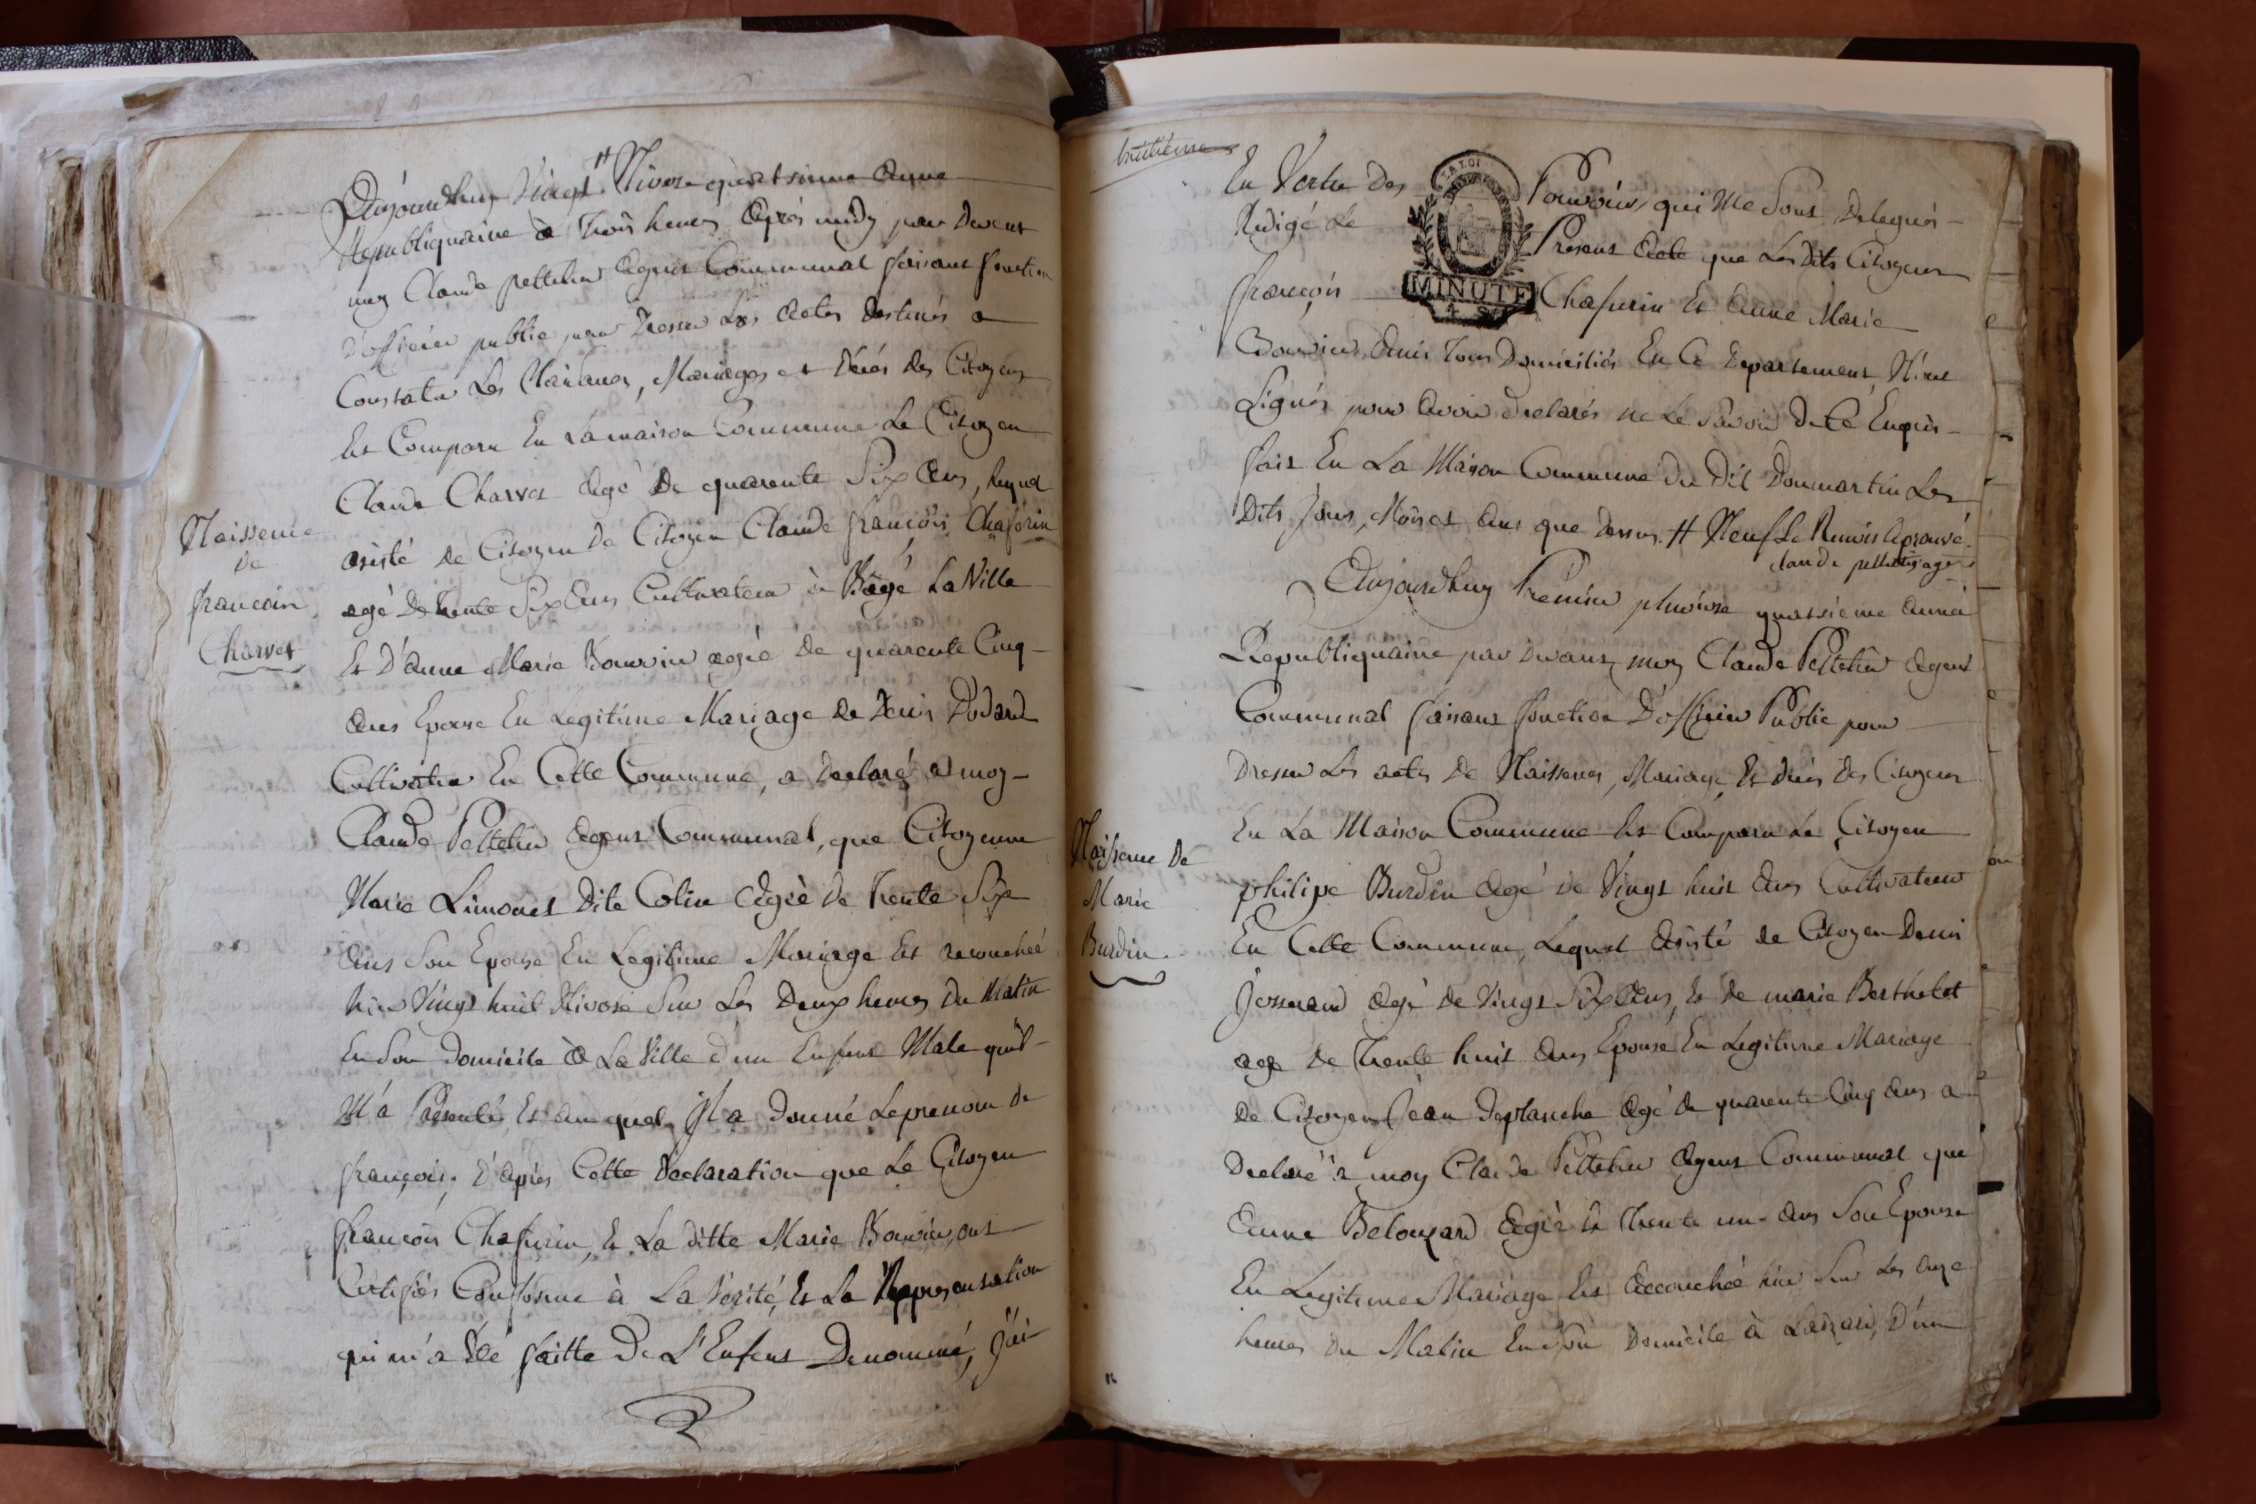 Aujourdhuy Vingt # Nivose quatrieme Année
Republiquaine à Trois heures Après midy par Devent
moy Claude pelletier Agent Communal faisant fonction
d'officier public pour Dresser Les Actes destinés a
Constater Les Naissances, Mariages et Décés des Citoyens
Est Comparu En La maison Commune Le Citoyen
Claude Charvet Agé De quarente Six Ans, lequel
asisté de Citoyen De Citoyen Claude françois Chafurin
agé De trente Six Ans Cultivateur à Bâgé La Ville
Et D'Anne Marie Bouvier agée De quarente Cinq
Ans Epouse En Legitime Mariage de Denis Dodard
Cultivateur En Cette Commune, a declaré a moy
Claude Pelletier Agent Communal, que Citoyenne
Marie Limonet Dite Colin Agée De trente Six
Ans Son Epouse En Legitime Mariage Est acouchéé
hier Vingt huit Nivose Sur Les Deux heures Du Matin
En Son Domicile à La Ville d'un Enfent Male qu'il
M'a Présenté, Et Au quel Il a Donné Leprenom de
françois. D'après Cette Declaration que Le Citoyen
françois Chafurin, Et La ditte Marie Bouvier, ont
Certifiés Conforme à La Vérité, Et La Représentation
qui m'a Eté faitte De L'Enfent Dénommé, J'ai
Naissence
de
francoin
Charvet
huitième
En Vertu Des Pouvoirs, qui Me Sont Delegués
Redigé Le Present Acte que Les dits Citoyens
françois Chafurin Et Anne Marie
LA LOI
MINUTE
Bouvier, Amis Tous Domiciliés En Ce Departement, N'ont
Signés pour Avoir declarés ne Le Savoir De Ce Enquis
fait En La Maison Commune Du Dit Dommartin Les
Dits Jours, Mois et Ans que dessus. # Neuf Le Renvois Aprouvé
claude pelletier agent
Aujourdhuy Prémier pluviose quatrieme Année
Republiquaine par Devant moy Claude Pelletier Agent
Communal faisant fonction D'officier Public pour
Dresser Les actes De Naissences, Mariage, Et décés Des Citoyens
En La Maison Commune Est Comparu Le Citoyen
philipe Burdin Agé de Vingt huit Ans Cultivateur
En Cette Commune, Lequel Asisté de Citoyen Denis
Agé de Vingt Six Ans, Et De marie Berthelot
age De Trente huit Ans Epouse En Legitime Mariage
De Citoyen Jean Deplanche Agé de quarente Cinq Ans a
Declaré à moy Claude Pelletier Agent Communal que
Anne Belouzard Agée De Trente un Ans Son Epouse
En Legitime Mariage Est Accouchéé hier Sur Les Onze
heures Du Matin En Son Domicile à D'un
Naissence De
Marie
Burdin